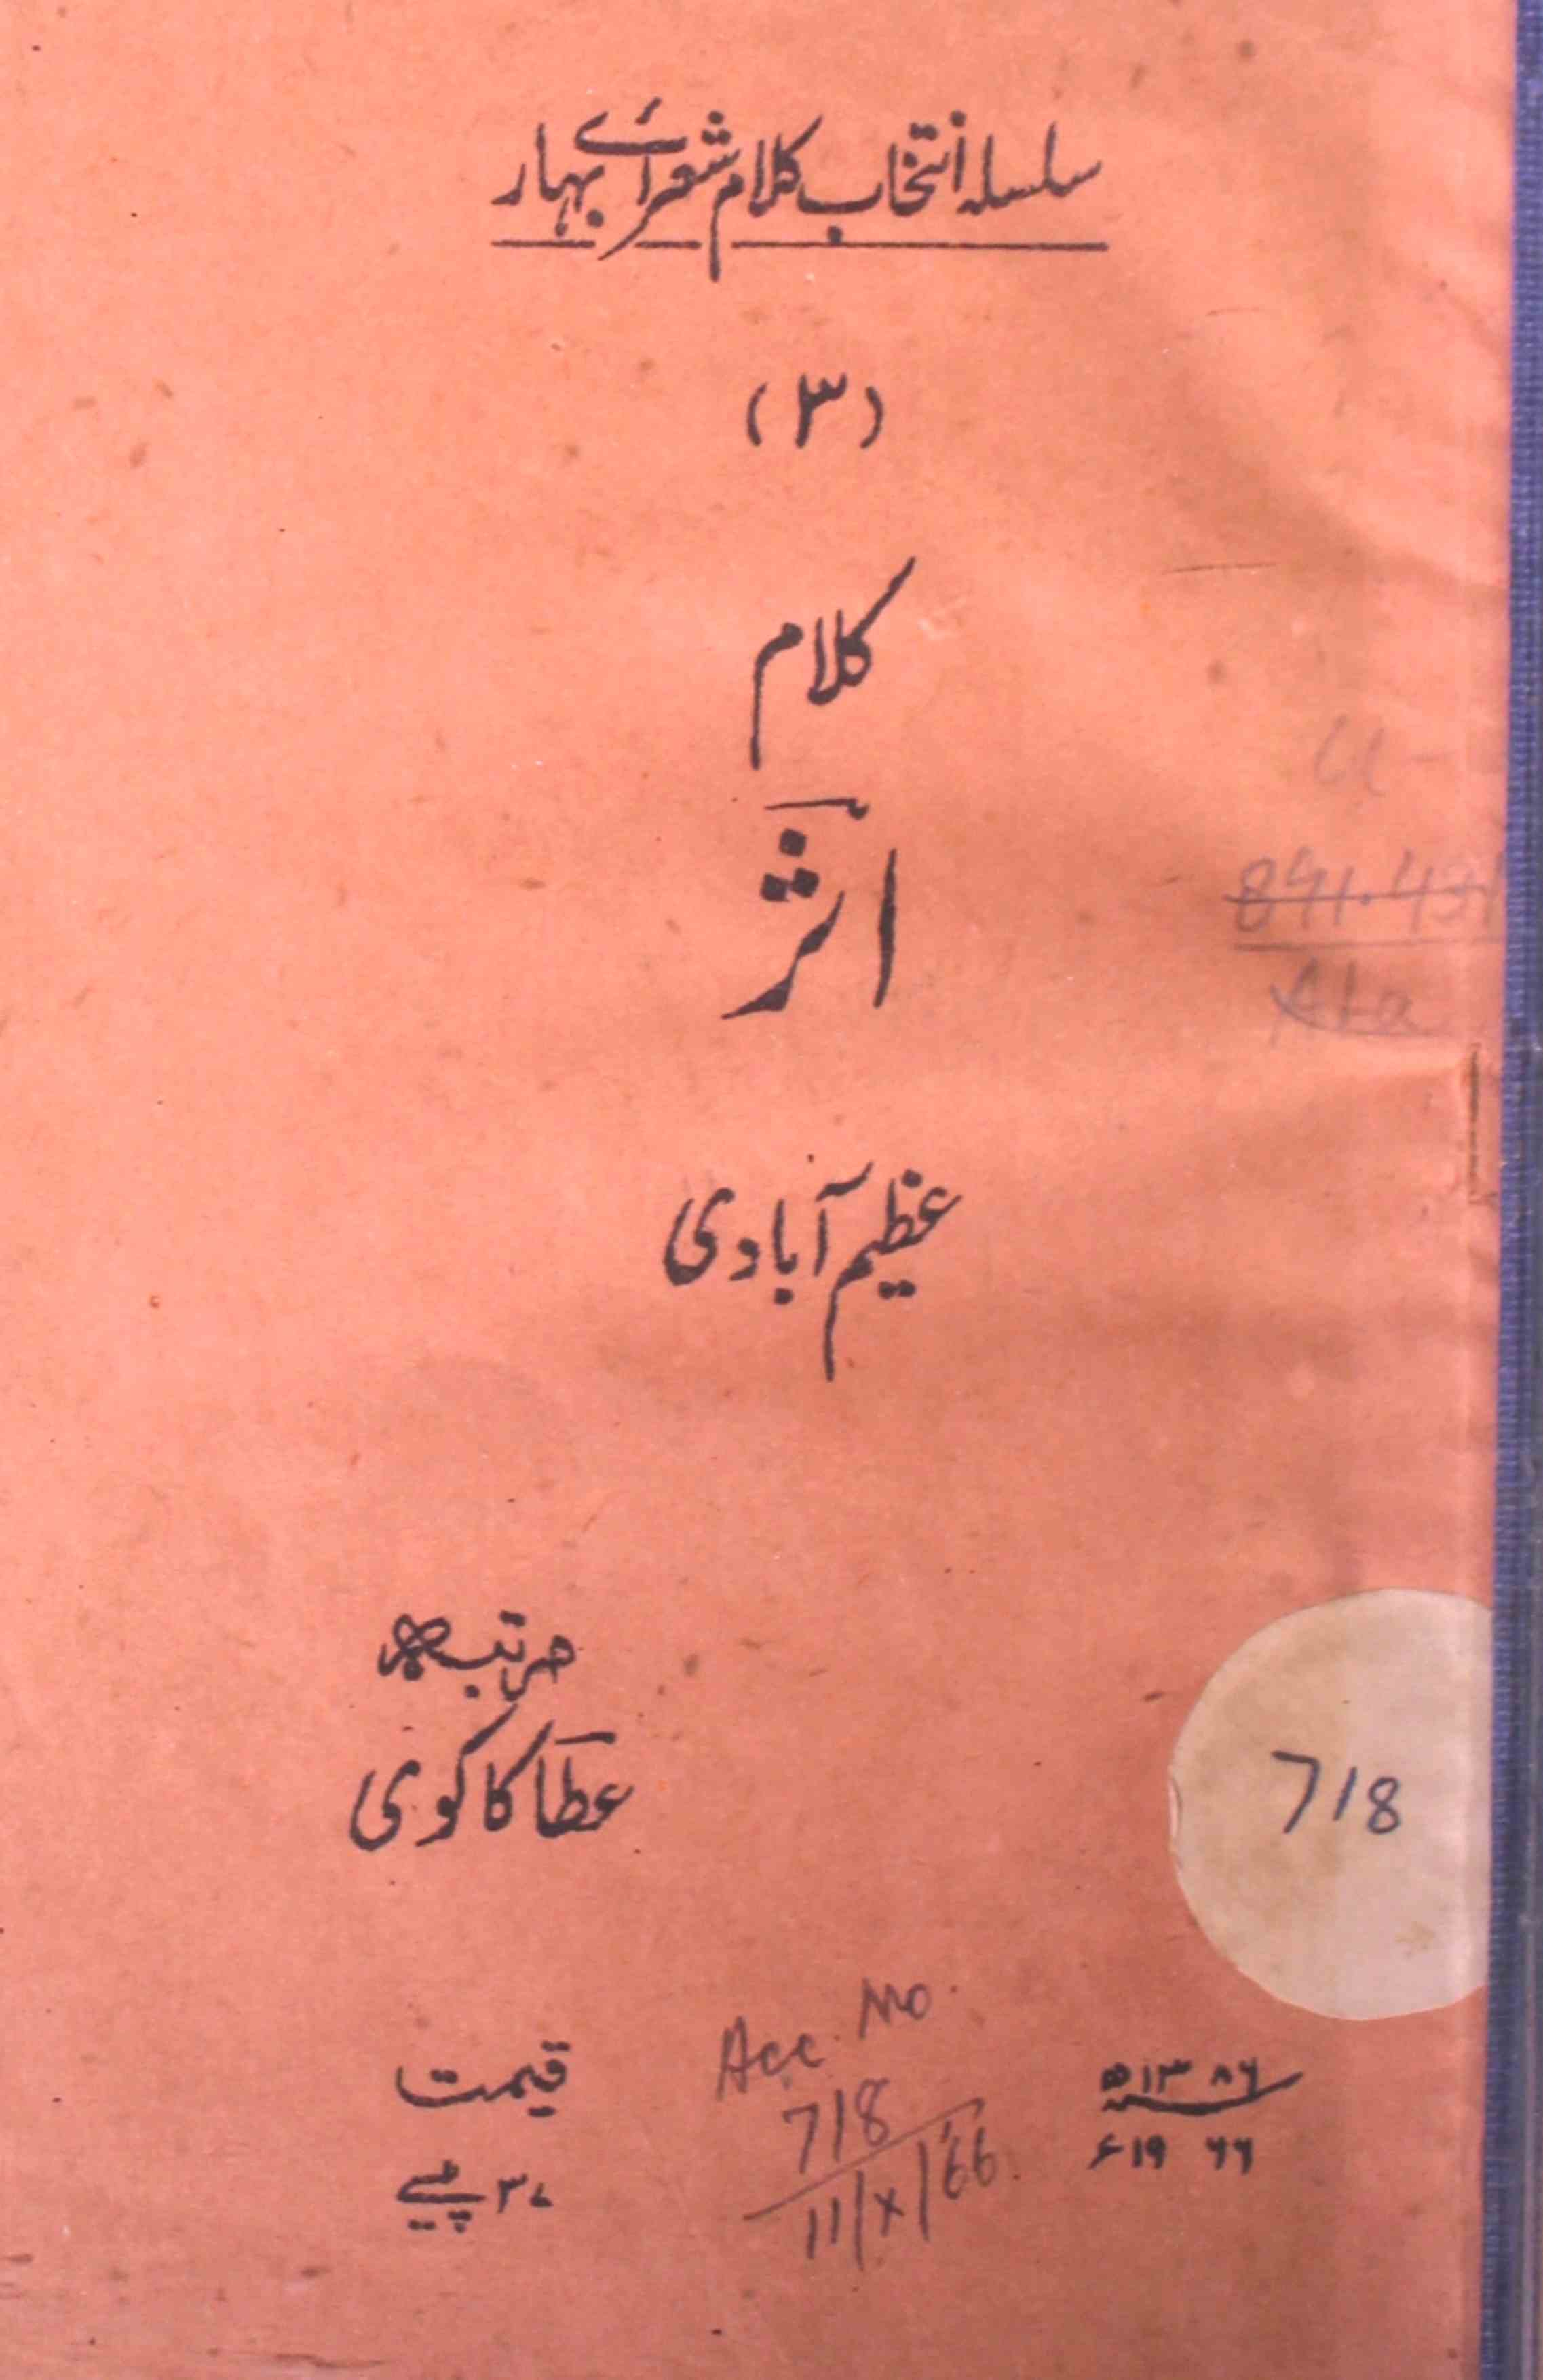 سلسلہ انتخاب کلام شعرائے بہار
(۳)
کلام
اثر
عظیم آبادی
U-
891.431
Ata
مرتبہ
عطا کاکوی
718
قیمت
۳۷ پیسے
Acc. No.
718
11/X/66
۱۳۸۶ھ
۱۹۶۶ء